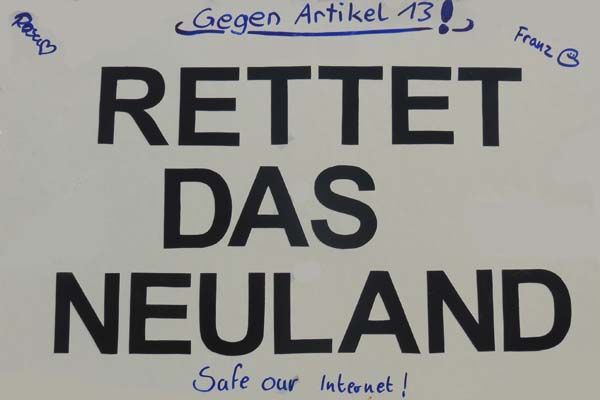 Gegen Artikel 13!
Franz
RETTET
DAS
NEULAND
Safe our Internet!